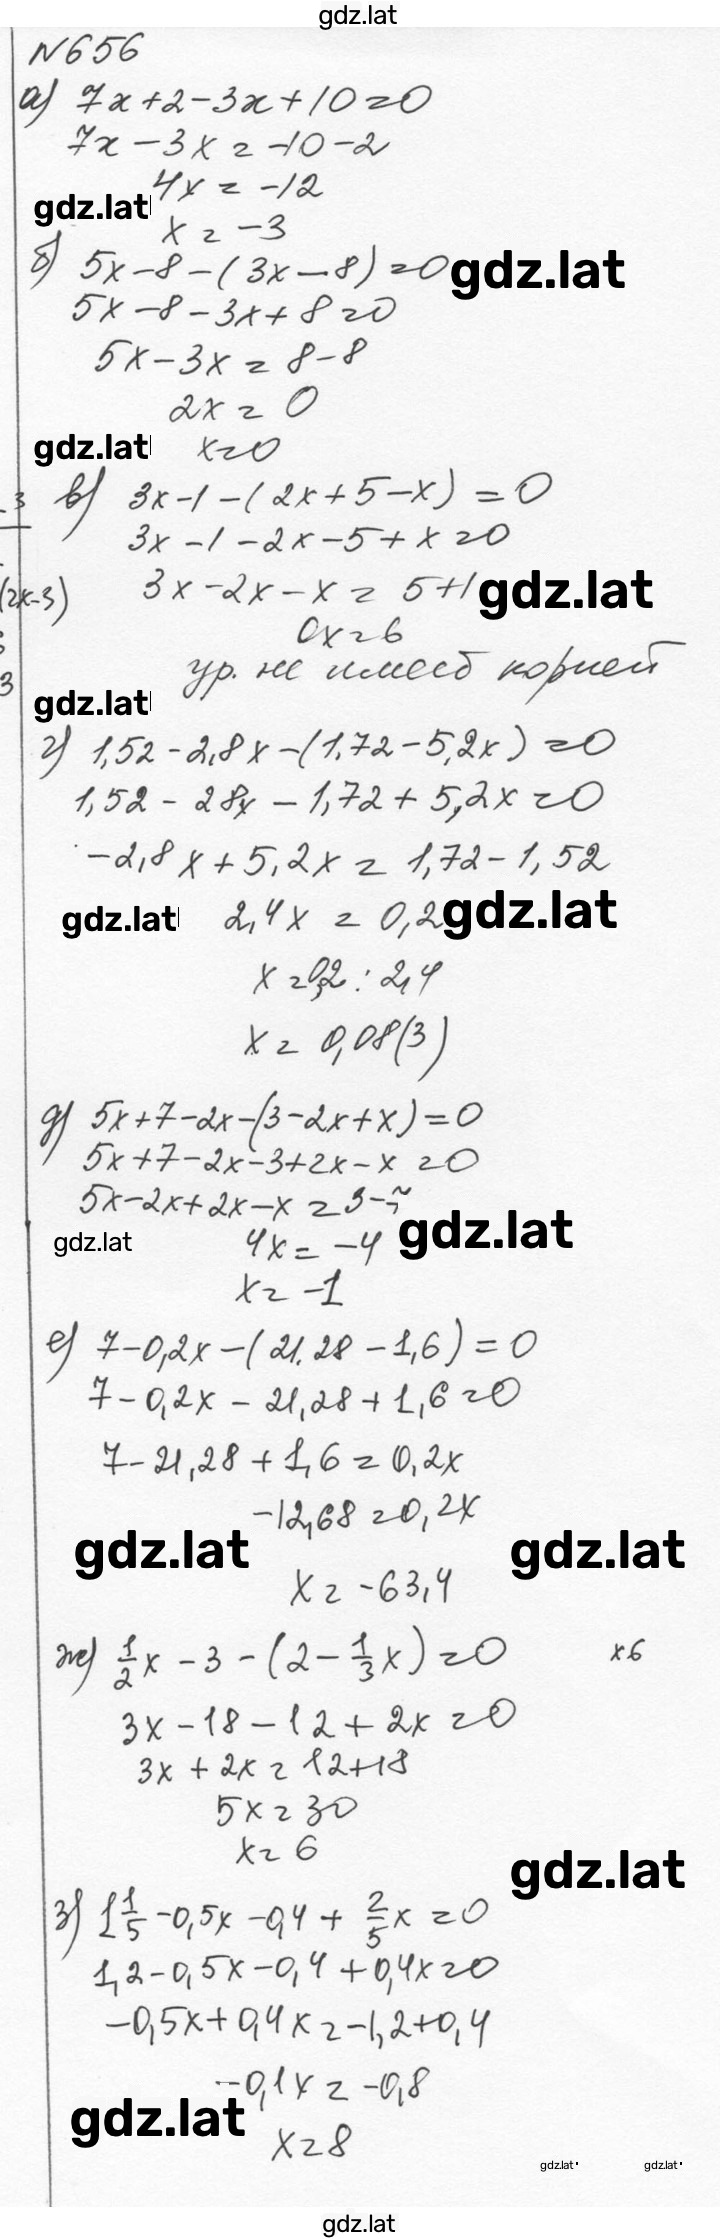 gdz.lat
№656
а) 7x+2-3x+10=0
7x-3x=-10-2
4x=-12
gdz.lat
x=-3
б) 5x-8-(3x-8)=0
gdz.lat
5x-8-3x+8=0
5x-3x=8-8
2x=0
gdz.lat
x=0
3
в) 3x-1-(2x+5-x)=0
3x-1-2x-5+x=0
(2x-3)
3x-2x-x=5+1
gdz.lat
0x=6
3
ур. не имеет корней
gdz.lat
г) 1,52-2,8x-(1,72-5,2x)=0
1,52-28x-1,72+5,2x=0
-2,8x+5,2x=1,72-1,52
gdz.lat
2,4x=0,2
gdz.lat
x=0,2:2,4
x=0,08(3)
д) 5x+7-2x-(3-2x+x)=0
5x+7-2x-3+2x-x=0
5x-2x+2x-x=3-7
gdz.lat
gdz.lat
4x=-4
x=-1
е) 7-0,2x-(21.28-1,6)=0
7-0,2x-21,28+1,6=0
7-21,28+1,6=0,2x
-12,68=0,2x
gdz.lat
gdz.lat
x=-63,4
ж) 1/2x-3-(2-1/3x)=0 x6
3x-18-12+2x=0
3x+2x=12+18
5x=30
x=6
gdz.lat
з) 1 1/5-0,5x-0,4+2/5x=0
1,2-0,5x-0,4+0,4x=0
-0,5x+0,4x=-1,2+0,4
-0,1x=-0,8
gdz.lat
x=8
gdz.lat
gdz.lat
gdz.lat